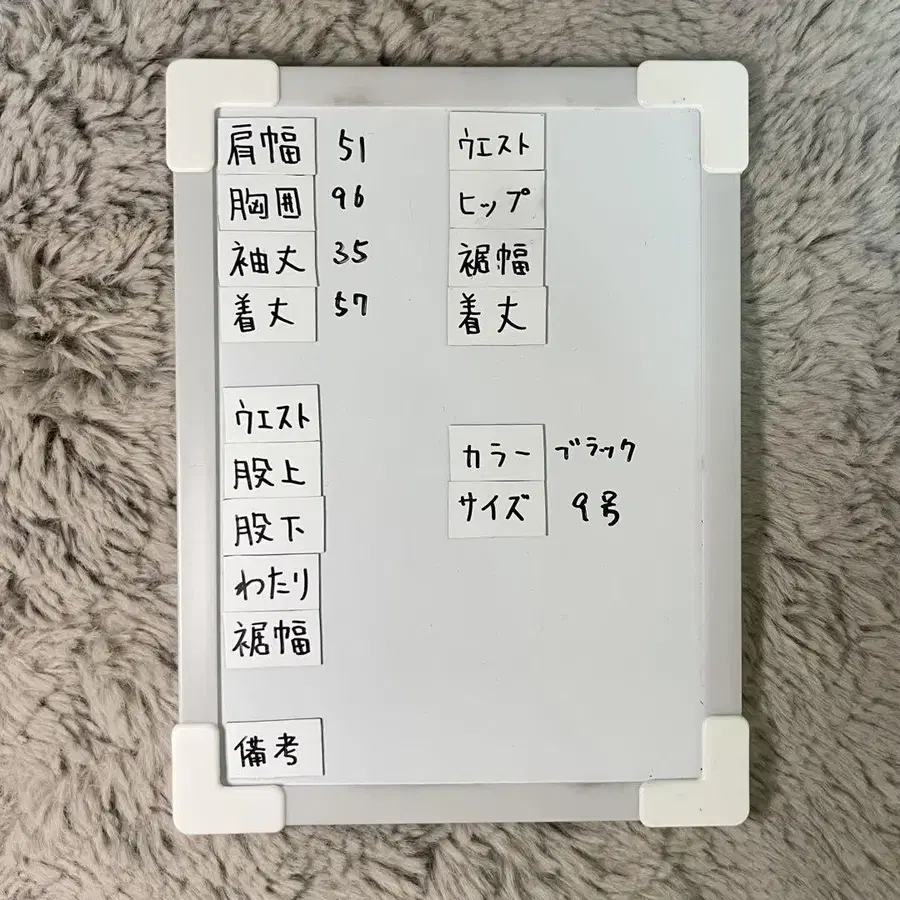 肩幅 51
胸囲 96
袖丈 35
着丈 57
ウエスト
股上
股下
わたり
裾幅
備考
ウエスト
ヒップ
裾幅
着丈
カラー ブラック
サイズ 9号